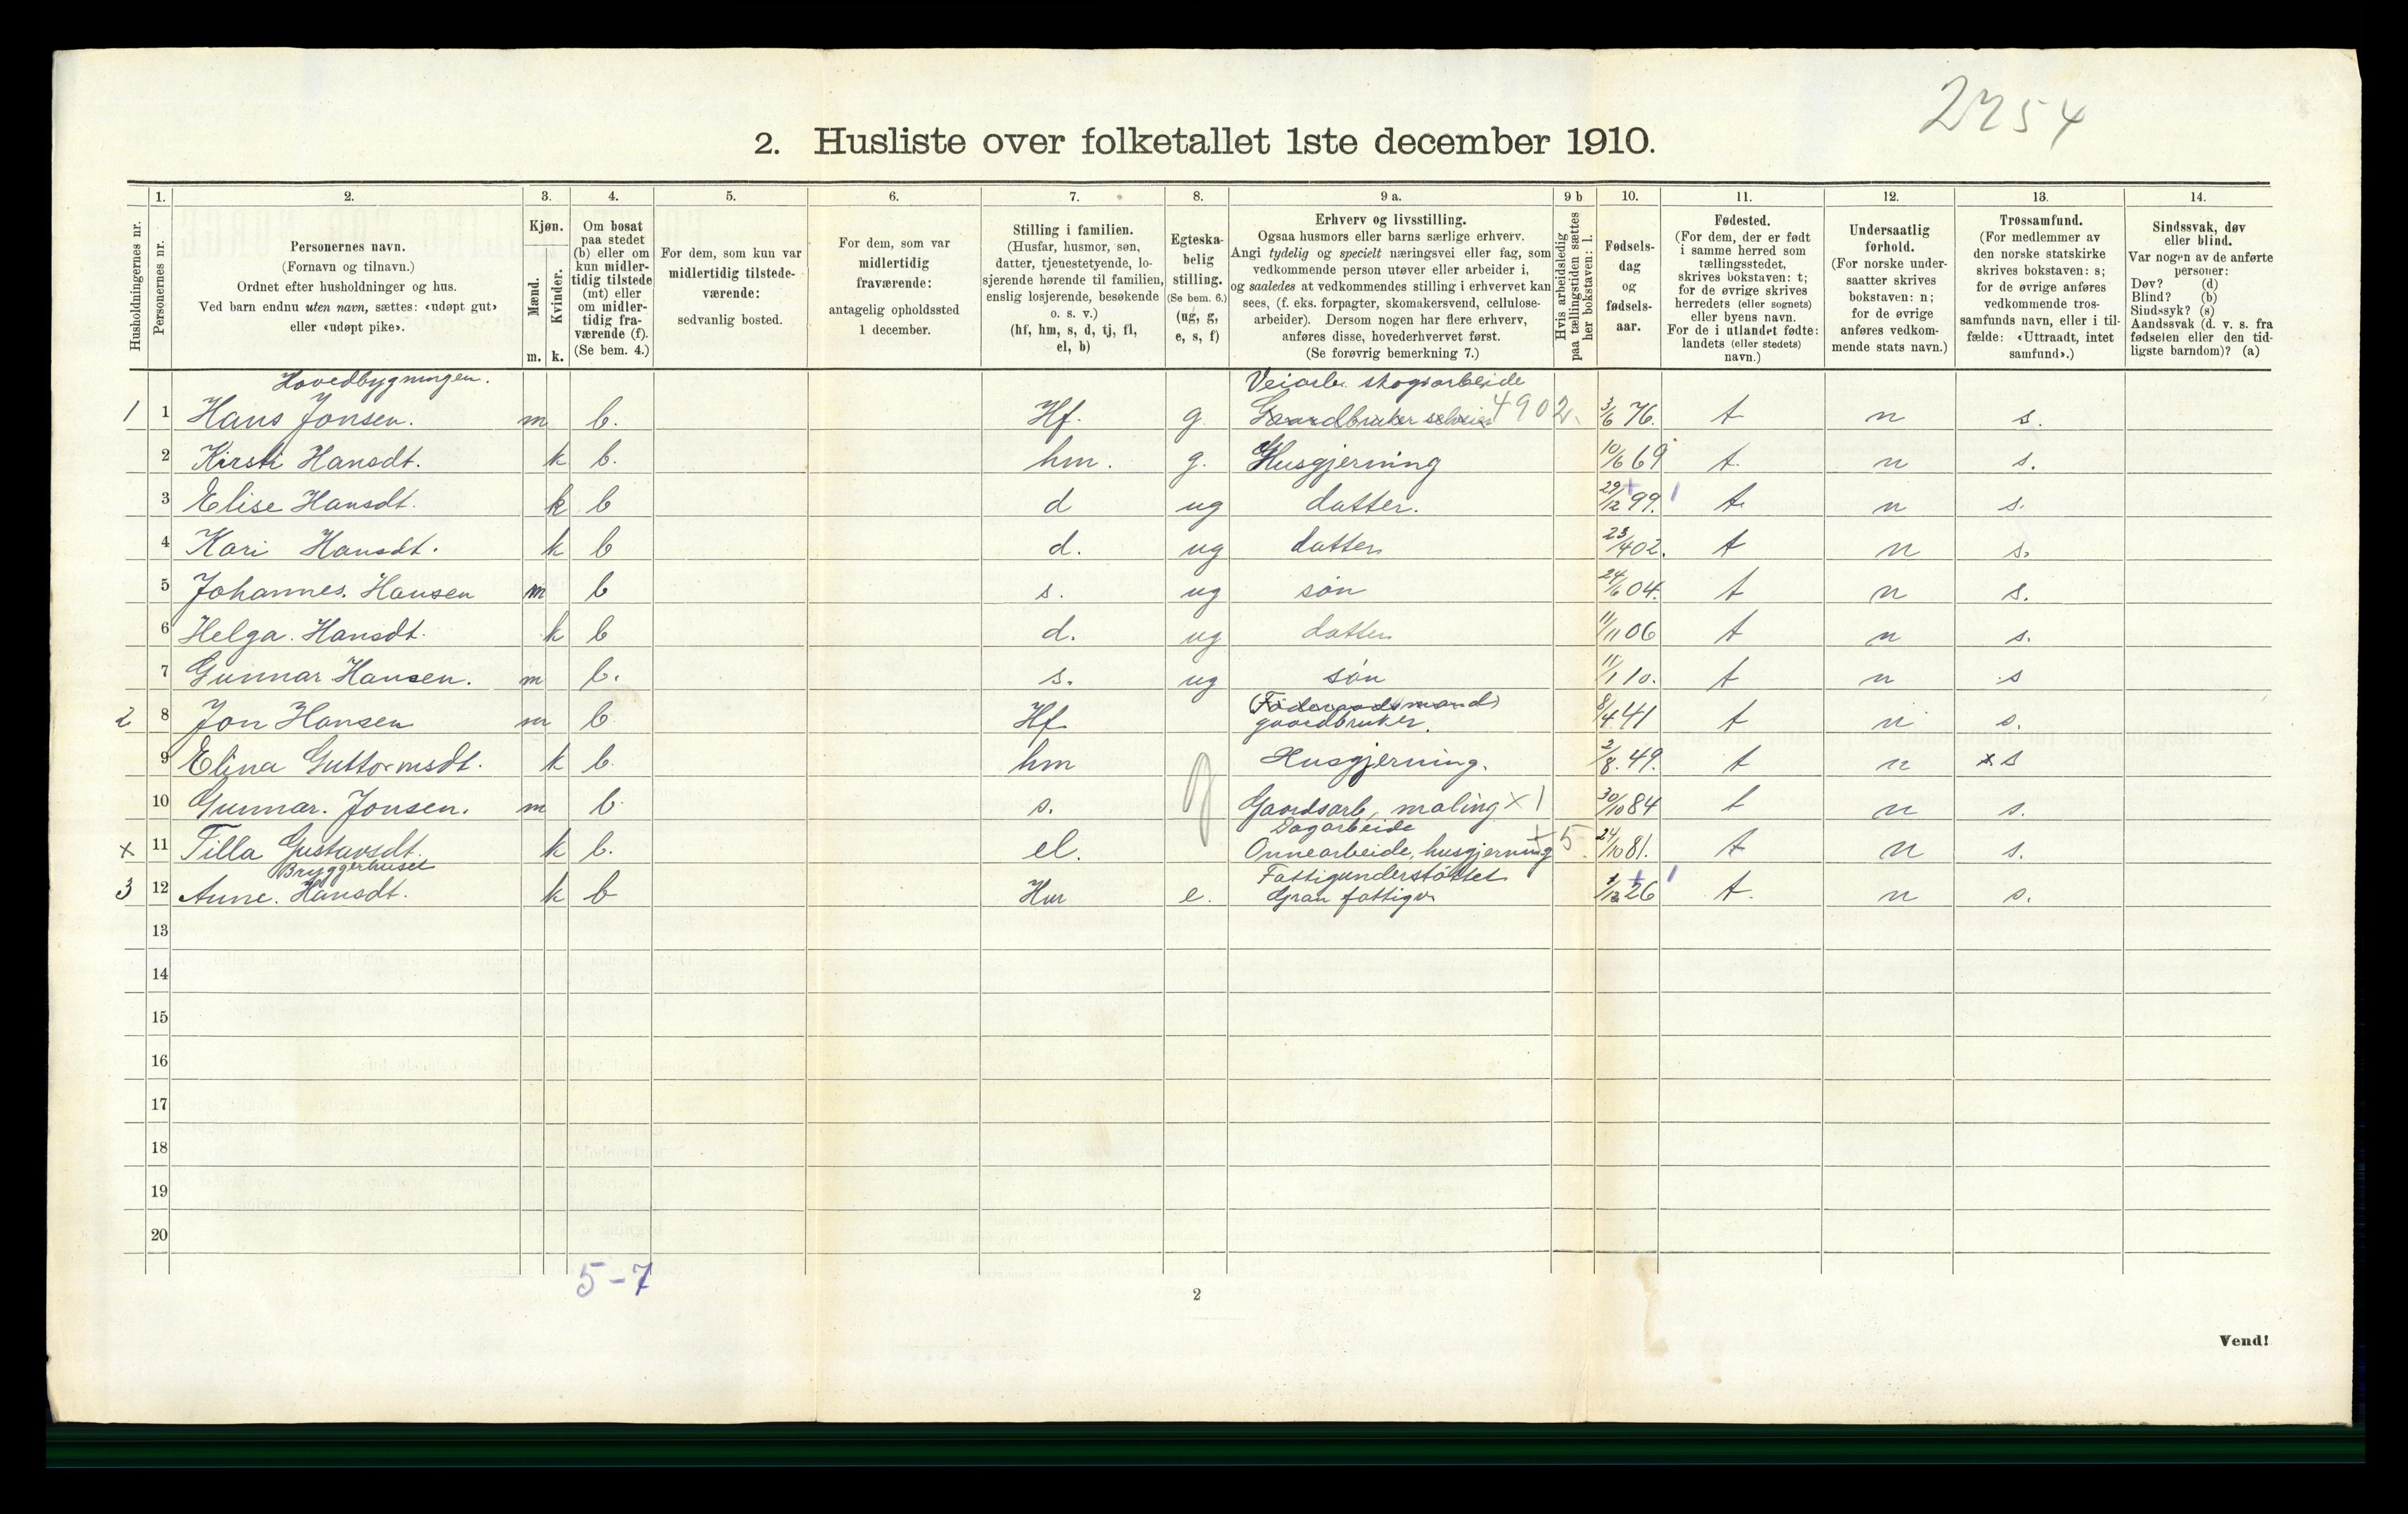 2754
2. Husliste over folketallet 1ste december 1910.
Husholdningernes nr.
1. Personernes nr.
2. Personernes navn. (Fornavn og tilnavn.) Ordnet efter husholdninger og hus. Ved barn endnu uten navn, sættes: «udøpt gut» eller «udøpt pike».
3. Kjøn. Mænd. m. Kvinder. k.
4. Om bosat paa stedet (b) eller om kun midlertidig tilstede (mt) eller om midlertidig fraværende (f). (Se bem. 4.)
5. For dem, som kun var midlertidig tilstedeværende: sedvanlig bosted.
6. For dem, som var midlertidig fraværende: antagelig opholdssted 1 december.
7. Stilling i familien. (Husfar, husmor, søn, datter, tjenestetyende, losjerende hørende til familien, enslig losjerende, besøkende o. s. v.) (hf, hm, s, d, tj, fl, el, b)
8. Egteskabelig stilling. (Se bem. 6.) (ug, g, e, s, f)
9 a. Erhverv og livsstilling. Ogsaa husmors eller barns særlige erhverv. Angi tydelig og specielt næringsvei eller fag, som vedkommende person utøver eller arbeider i, og saaledes at vedkommendes stilling i erhvervet kan sees, (f. eks. forpagter, skomakersvend, cellulosearbeider). Dersom nogen har flere erhverv, anføres disse, hovederhvervet først. (Se forøvrig bemerkning 7.)
9 b Hvis arbeidsledig paa tællingstiden sættes her bokstaven: l.
10. Fødselsdag og fødselsaar.
11. Fødested. (For dem, der er født i samme herred som tællingsstedet, skrives bokstaven: t; for de øvrige skrives herredets (eller sognets) eller byens navn. For de i utlandet fødte: landets (eller stedets) navn.)
12. Undersaatlig forhold. (For norske undersaatter skrives bokstaven: n; for de øvrige anføres vedkommende stats navn.)
13. Trossamfund. (For medlemmer av den norske statskirke skrives bokstaven: s; for de øvrige anføres vedkommende trossamfunds navn, eller i tilfælde: «Uttraadt, intet samfund».)
14. Sindssvak, døv eller blind. Var nogen av de anførte personer: Døv? (d) Blind? (b) Sindssyk? (s) Aandssvak (d. v. s. fra fødselen eller den tidligste barndom)? (a)
Hovedbygningen. Veiarb. skogsarbeide
1 1 Hans Jonsen. m b. Hf. g. Gaardbruker selveier 4902. 3/6 76. t n s.
2 Kirsti Hansdt. k b. hm. g. Husgjerning 10/6 69 t. n s.
3 Elise Hansdt. k b d ug datter. 29/12 99. t. n s.
4 Kari Hansdt. k b d. ug datter 23/4 02. t n s.
5 Johannes. Hansen m b s. ug søn 24/6 04. t n s.
6 Helga. Hansdt. k b d. ug datter 11/11 06 t n s.
7 Gunnar Hansen. m b. s. ug søn 11/1 10. t n s
(Føderaadsmand)
2 8 Jon Hansen m b Hf g gaardbruker. 8/4 41 t n s.
9 Elina Guttormsdt. k b. hm Husgjerning. 2/8. 49. t n x s
10 Gunnar. Jonsen. m b. s. Gaardsarb, maling x 1 30/10 84 t n s.
Dagarbeide
x 11 Tilla Gustavsdt. k b. el. Onnearbeide, husgjerning + 5 24/10 81. t n s.
Bryggerhuset Fattigunderstøttet
3 12 Anne. Hansdt. k b Hm e. Gran fattigv 1/12 26 t. n s.
13
14
15
16
17
18
19
20
5-7
2
Vend!